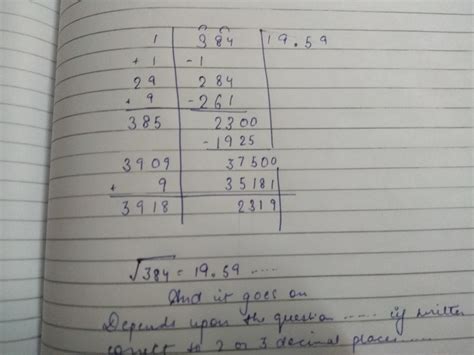 1 | 384 | 19.59
+ 1 | - 1
29 | 284
+ 9 | - 261
385 | 2300
- 1925
3909 | 37500
+ 9 | 35181
3918 | 2319
√384 = 19.59 .....
And it goes on
Depends upon the question ...... if written
correct to 2 or 3 decimal places......